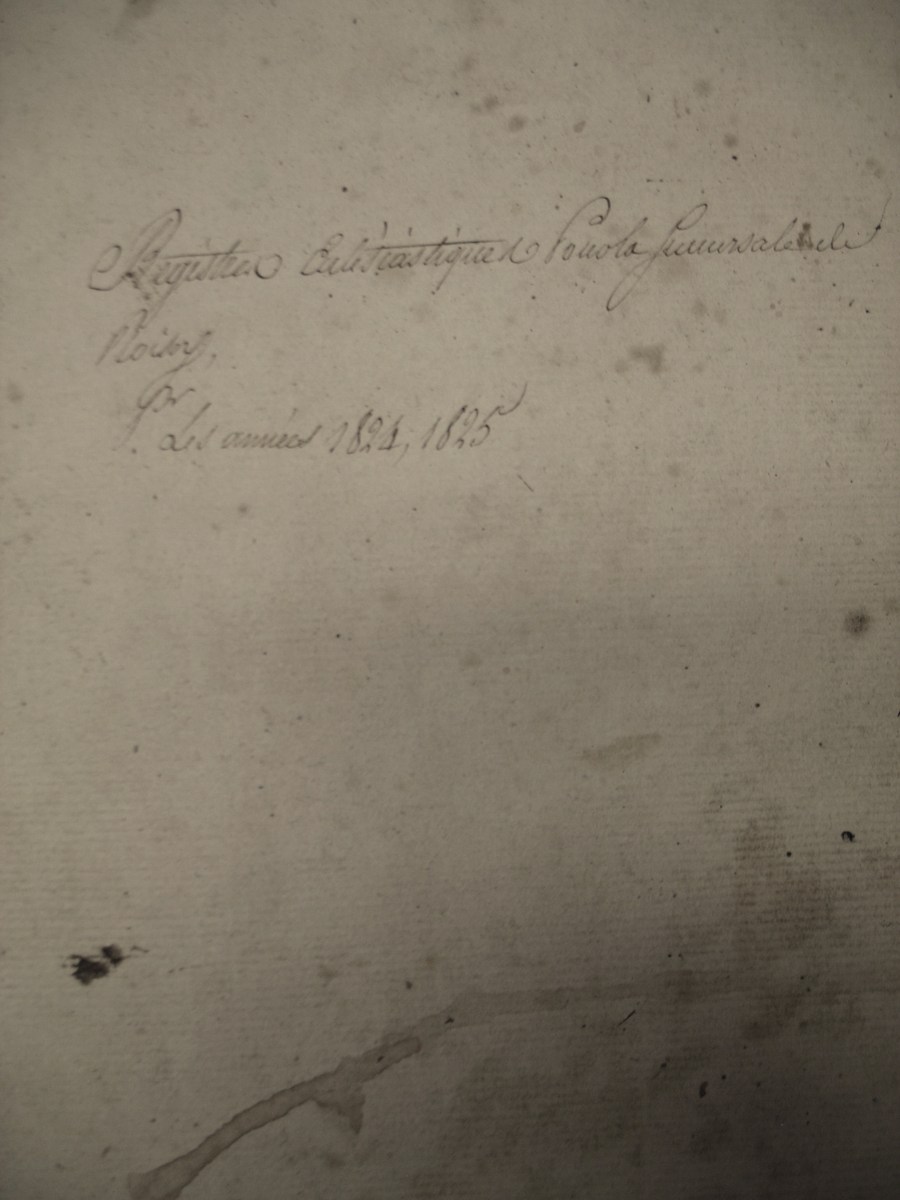 Registres Eclésiastiques Pour la Succursale de
Noisy,
pr. Les années 1824, 1825